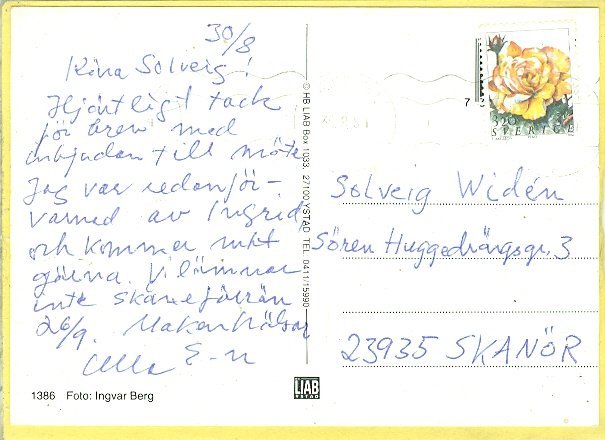 30/8
Kära Solveig!
Hjärtligt tack
för brev med
inbjudan till möte
Jag var redan för-
varnad av Ingrid,
och kommer mkt
gärna. Vi lämnar
inte Skåne förrän
26/9. Maken hälsar
Ulla E-n
1386 Foto: Ingvar Berg
© HB LIAB Box 1033. 27100 YSTAD TEL. 0411/15990
LIAB
YSTAD
3.20
SVERIGE
Solveig Widén
Sören Huggedrängsgr. 3
23935 SKANÖR